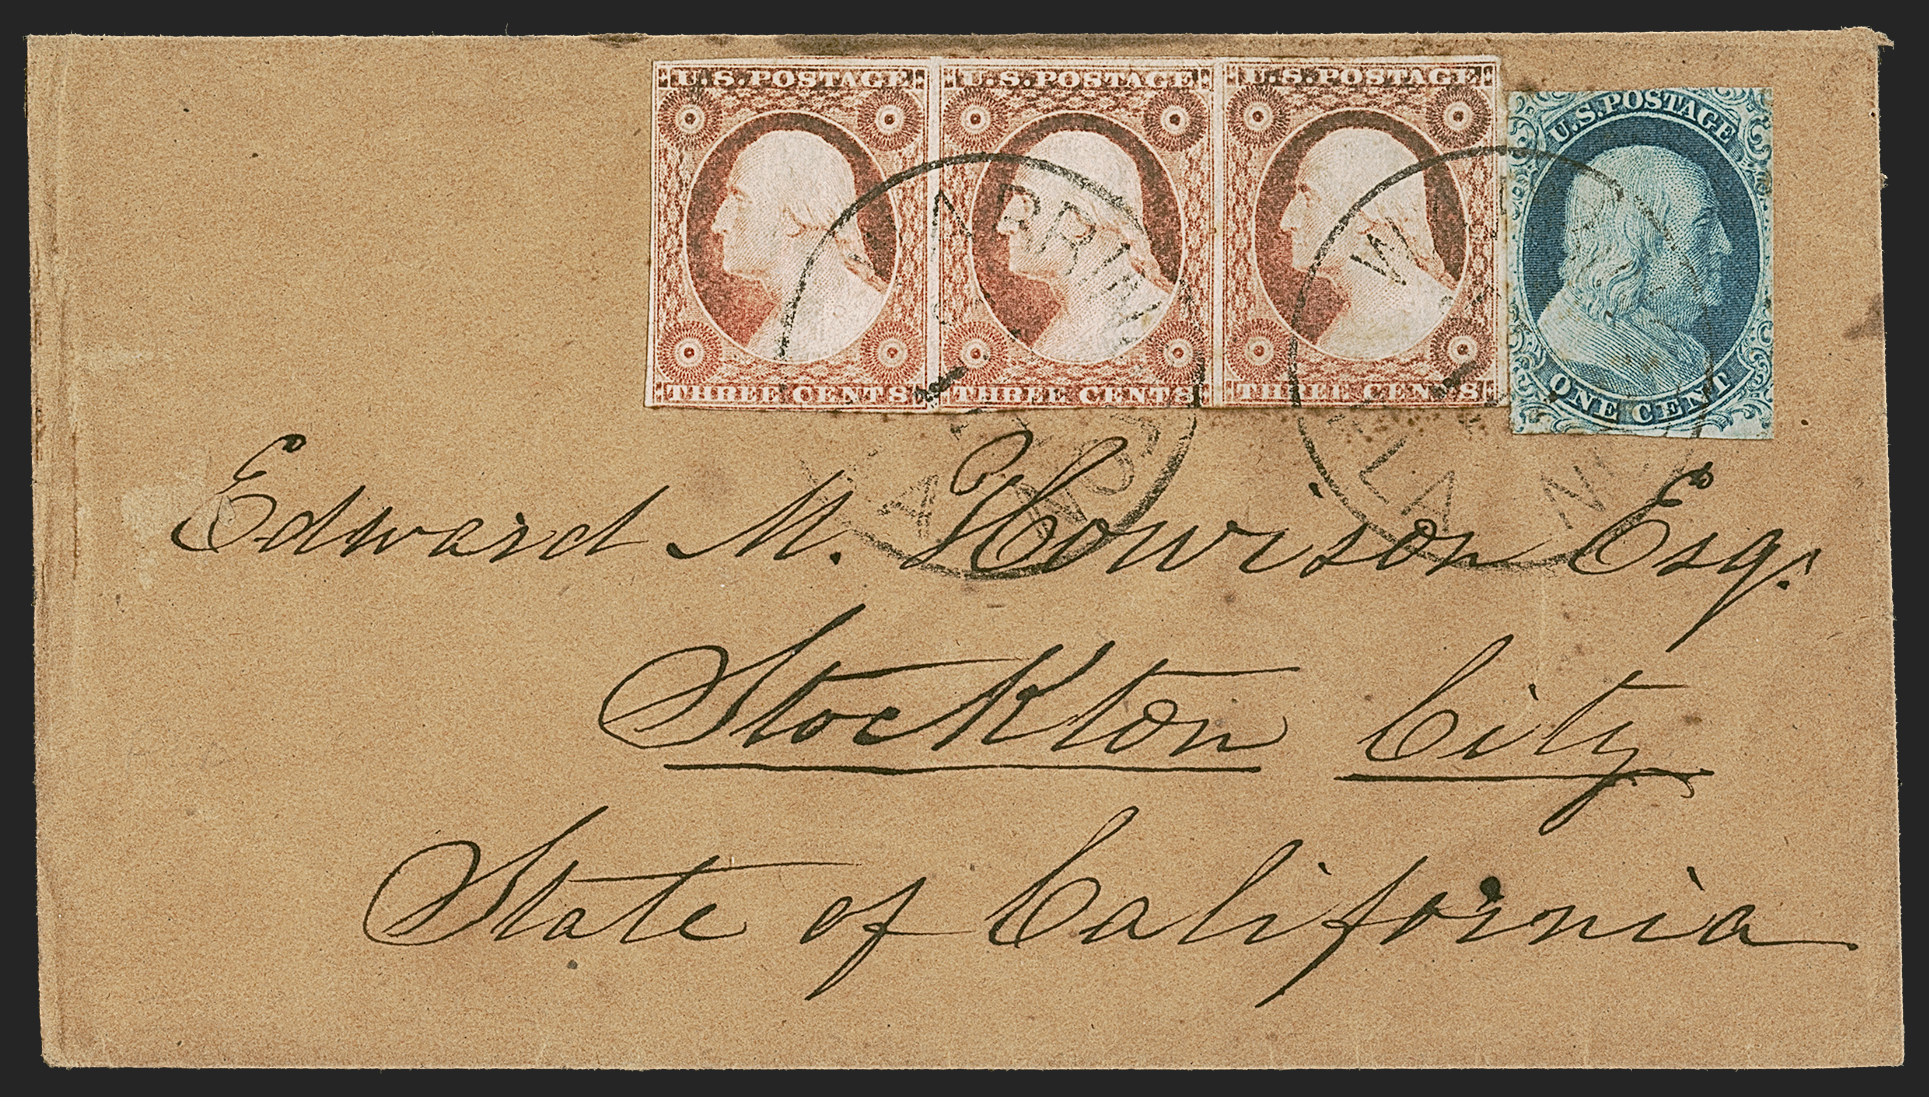 U.S.POSTAGE U.S.POSTAGE U.S.POSTAGE
U.S.POSTAGE
THREE CENTS THREE CENTS THREE CENTS
ONE CENT
LA
Edward M. Howison Esq.
Stockton City
State of California